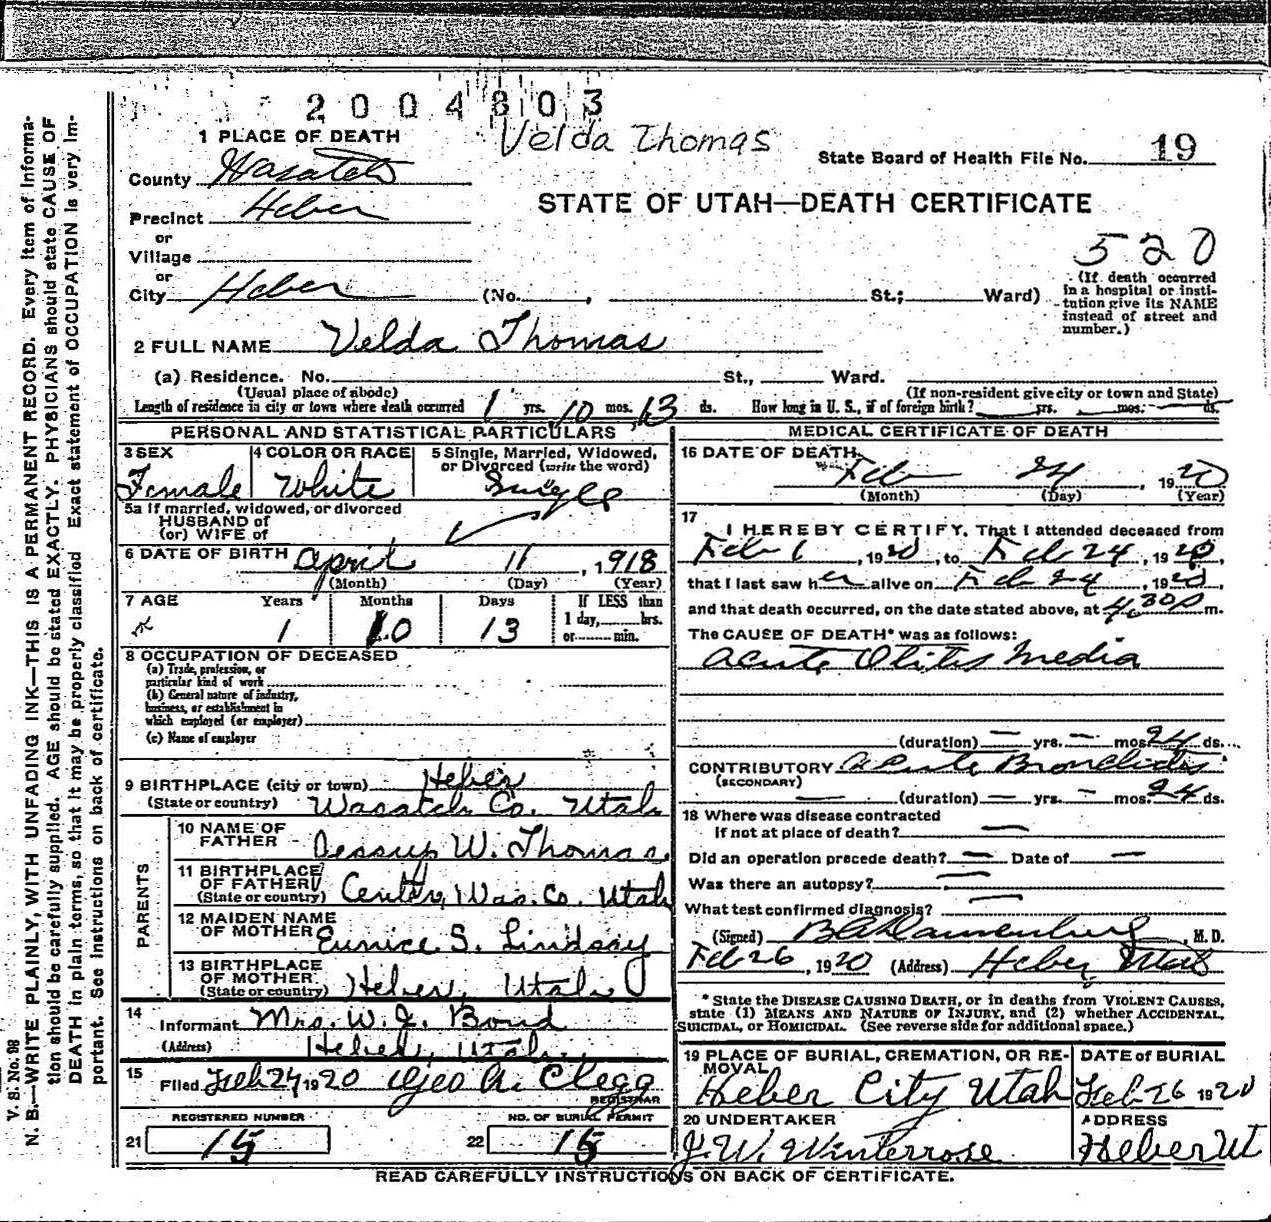 2004803
Velda Thomas
1 PLACE OF DEATH
State Board of Health File No. 19
County Wasatch
STATE OF UTAH—DEATH CERTIFICATE
Precinct Heber
or
Village
520
or
City Heber (No. , St.; Ward)
(If death occurred in a hospital or insti-
tution give its NAME
instead of street and
number.)
2 FULL NAME Velda Thomas
(a) Residence. No. St., Ward.
(Usual place of abode) (If non-resident give city or town and State)
Length of residence in city or town where death occurred 1 yrs. 10 mos. 13 ds. How long in U. S., if of foreign birth? yrs. mos. ds.
PERSONAL AND STATISTICAL PARTICULARS
3 SEX Female
4 COLOR OR RACE White
5 Single, Married, Widowed,
or Divorced (write the word)
Single
5a If married, widowed, or divorced
HUSBAND of
(or) WIFE of
6 DATE OF BIRTH April 11, 1918
(Month) (Day) (Year)
7 AGE Years Months Days If LESS than
1 10 13 1 day, hrs.
or min.
8 OCCUPATION OF DECEASED
(a) Trade, profession, or
particular kind of work
(b) General nature of industry,
business, or establishment in
which employed (or employer)
(c) Name of employer
9 BIRTHPLACE (city or town) Heber
(State or country) Wasatch Co. Utah
PARENTS
10 NAME OF
FATHER Jessup W. Thomas
11 BIRTHPLACE
OF FATHER
(State or country) Center, Was. Co. Utah
12 MAIDEN NAME
OF MOTHER Eunice S. Lindsay
13 BIRTHPLACE
OF MOTHER
(State or country) Heber, Utah
14
Informant Mrs. W. J. Bond
(Address) Heber, Utah
15
Filed Feb 27 1920 Geo A. Clegg
REGISTRAR
REGISTERED NUMBER NO. OF BURIAL PERMIT
21 15 22 15
MEDICAL CERTIFICATE OF DEATH
16 DATE OF DEATH
Feb 24, 1920
(Month) (Day) (Year)
17
I HEREBY CERTIFY, That I attended deceased from
Feb 1, 1920, to Feb 24, 1920,
that I last saw her alive on Feb 24, 1920
and that death occurred, on the date stated above, at 4.30 p m.
The CAUSE OF DEATH* was as follows:
Acute Otitis Media
(duration) — yrs. — mos. 24 ds.
CONTRIBUTORY Acute Bronchitis
(SECONDARY)
(duration) — yrs. — mos. 24 ds.
18 Where was disease contracted
If not at place of death? —
Did an operation precede death? — Date of —
Was there an autopsy? —
What test confirmed diagnosis? —
(Signed) B A Dannenberg, M. D.
Feb 26, 1920 (Address) Heber Utah
* State the DISEASE CAUSING DEATH, or in deaths from VIOLENT CAUSES,
state (1) MEANS AND NATURE OF INJURY, and (2) whether ACCIDENTAL,
SUICIDAL, or HOMICIDAL. (See reverse side for additional space.)
19 PLACE OF BURIAL, CREMATION, OR RE-
MOVAL
Heber City Utah
DATE OF BURIAL
Feb 26 1920
20 UNDERTAKER
J. W. Winterrose
ADDRESS
Heber Ut
READ CAREFULLY INSTRUCTIONS ON BACK OF CERTIFICATE.
V. S. No. 98
N. B.—WRITE PLAINLY, WITH UNFADING INK—THIS IS A PERMANENT RECORD. Every item of informa-
tion should be carefully supplied. AGE should be stated EXACTLY. PHYSICIANS should state CAUSE OF
DEATH in plain terms, so that it may be properly classified. Exact statement of OCCUPATION is very im-
portant. See instructions on back of certificate.